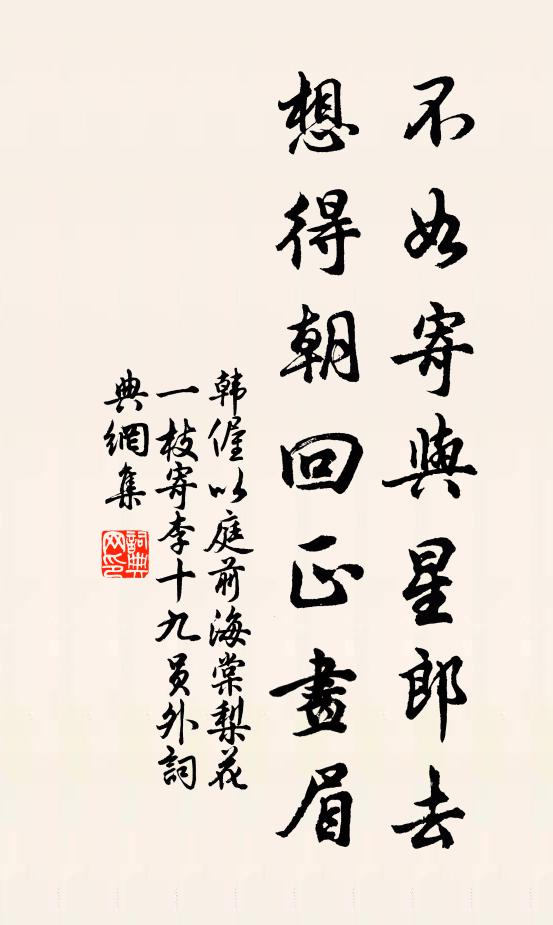 不如寄與星郎去
想得朝回正畫眉
韩偓以庭前海棠梨花
一枝寄李十九員外詞
典網集
詞典网印